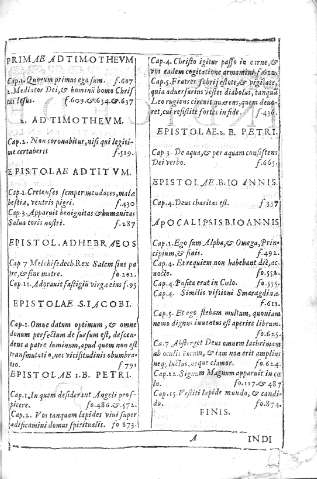 PRIMAE AD TIMOTHEVM
Cap.1. Quorum primus ego sum. f.607
2. Mediator Dei, & hominũ homo Chris
tus Iesus. f 603. & 634. & 637
2. AD TIMOTHEVM.
Cap.2. Non coronabitur, nisi qui legiti-
me certaberit f.519.
EPISTOLAE AD TITVM.
Cap.1. Cretenses semper mendaces, malæ
bestiæ, ventris pigri. f.430
Cap.3. Apparuit benignitas & humanitas
Salvatoris nostri. f.287
EPISTOL. AD HEBRAEOS
Cap 7 Melchisedech Rex Salem sine pa
tre, & sine matre. fo 202.
Cap 11. Adoravit fastigiũ virgæ eius f.95
EPISTOLAE S. IACOBI.
Cap.1. Omne datum optimum, & omne
donum perfectum de sursum est, descen-
dens a patre luminum, apud quem non est
transmutatio, nec vicissitudinis obumbra-
tio. f 791
EPISTOLAE 1. B. PETRI.
Cap.1. In quem desiderant Angeli pros
picere. fo.486. & 572.
Cap.2. Vos tanquam lapides vivi super
ædificamini domus spiritualis. fo 873
Cap.4. Christo igitur passo in carne, &
vos eadem cogitatione armamini
Cap.5. Fratres sobrij estote, & vigilate,
quia adversarius vester diabolus, tanquã
Leo rugiens circuit quærens, quem devo-
ret, cui resistite fortes in fide. f.436.
EPISTOLAE 2. B. PETRI.
Cap.3. De aqua, & per aquam consistens
Dei verbo. f.665.
EPISTOLAE B. IOANNIS.
Cap.4. Deus charitas est. f.337
APOCALIPSIS B. IOANNIS.
Cap.1. Ego sum Alpha, & Omega, Prin-
cipium, & finis. f.492.
Cap.4. Et requiem non habebant die, ac
nocte. fo.552.
Cap.4. Posita erat in Cælo. fo.535.
Cap.4. Similis visioni Smaragdinæ
f.612.
Cap.5. Et ego flebam multum, quoniam
nemo dignus inventus est aperire librum.
fo.625.
Cap.7. Absterget Deus omnem lachrimam
ab oculis eorum, & iam non erit amplius
neq; luctus, neque clamor. fo.624.
Cap.12. Signum Magnum apparuit in cæ
lo. fo.117. & 487
Cap.15. Vestiti lapide mundo, & candi-
do. fo.873.
FINIS.
A INDI